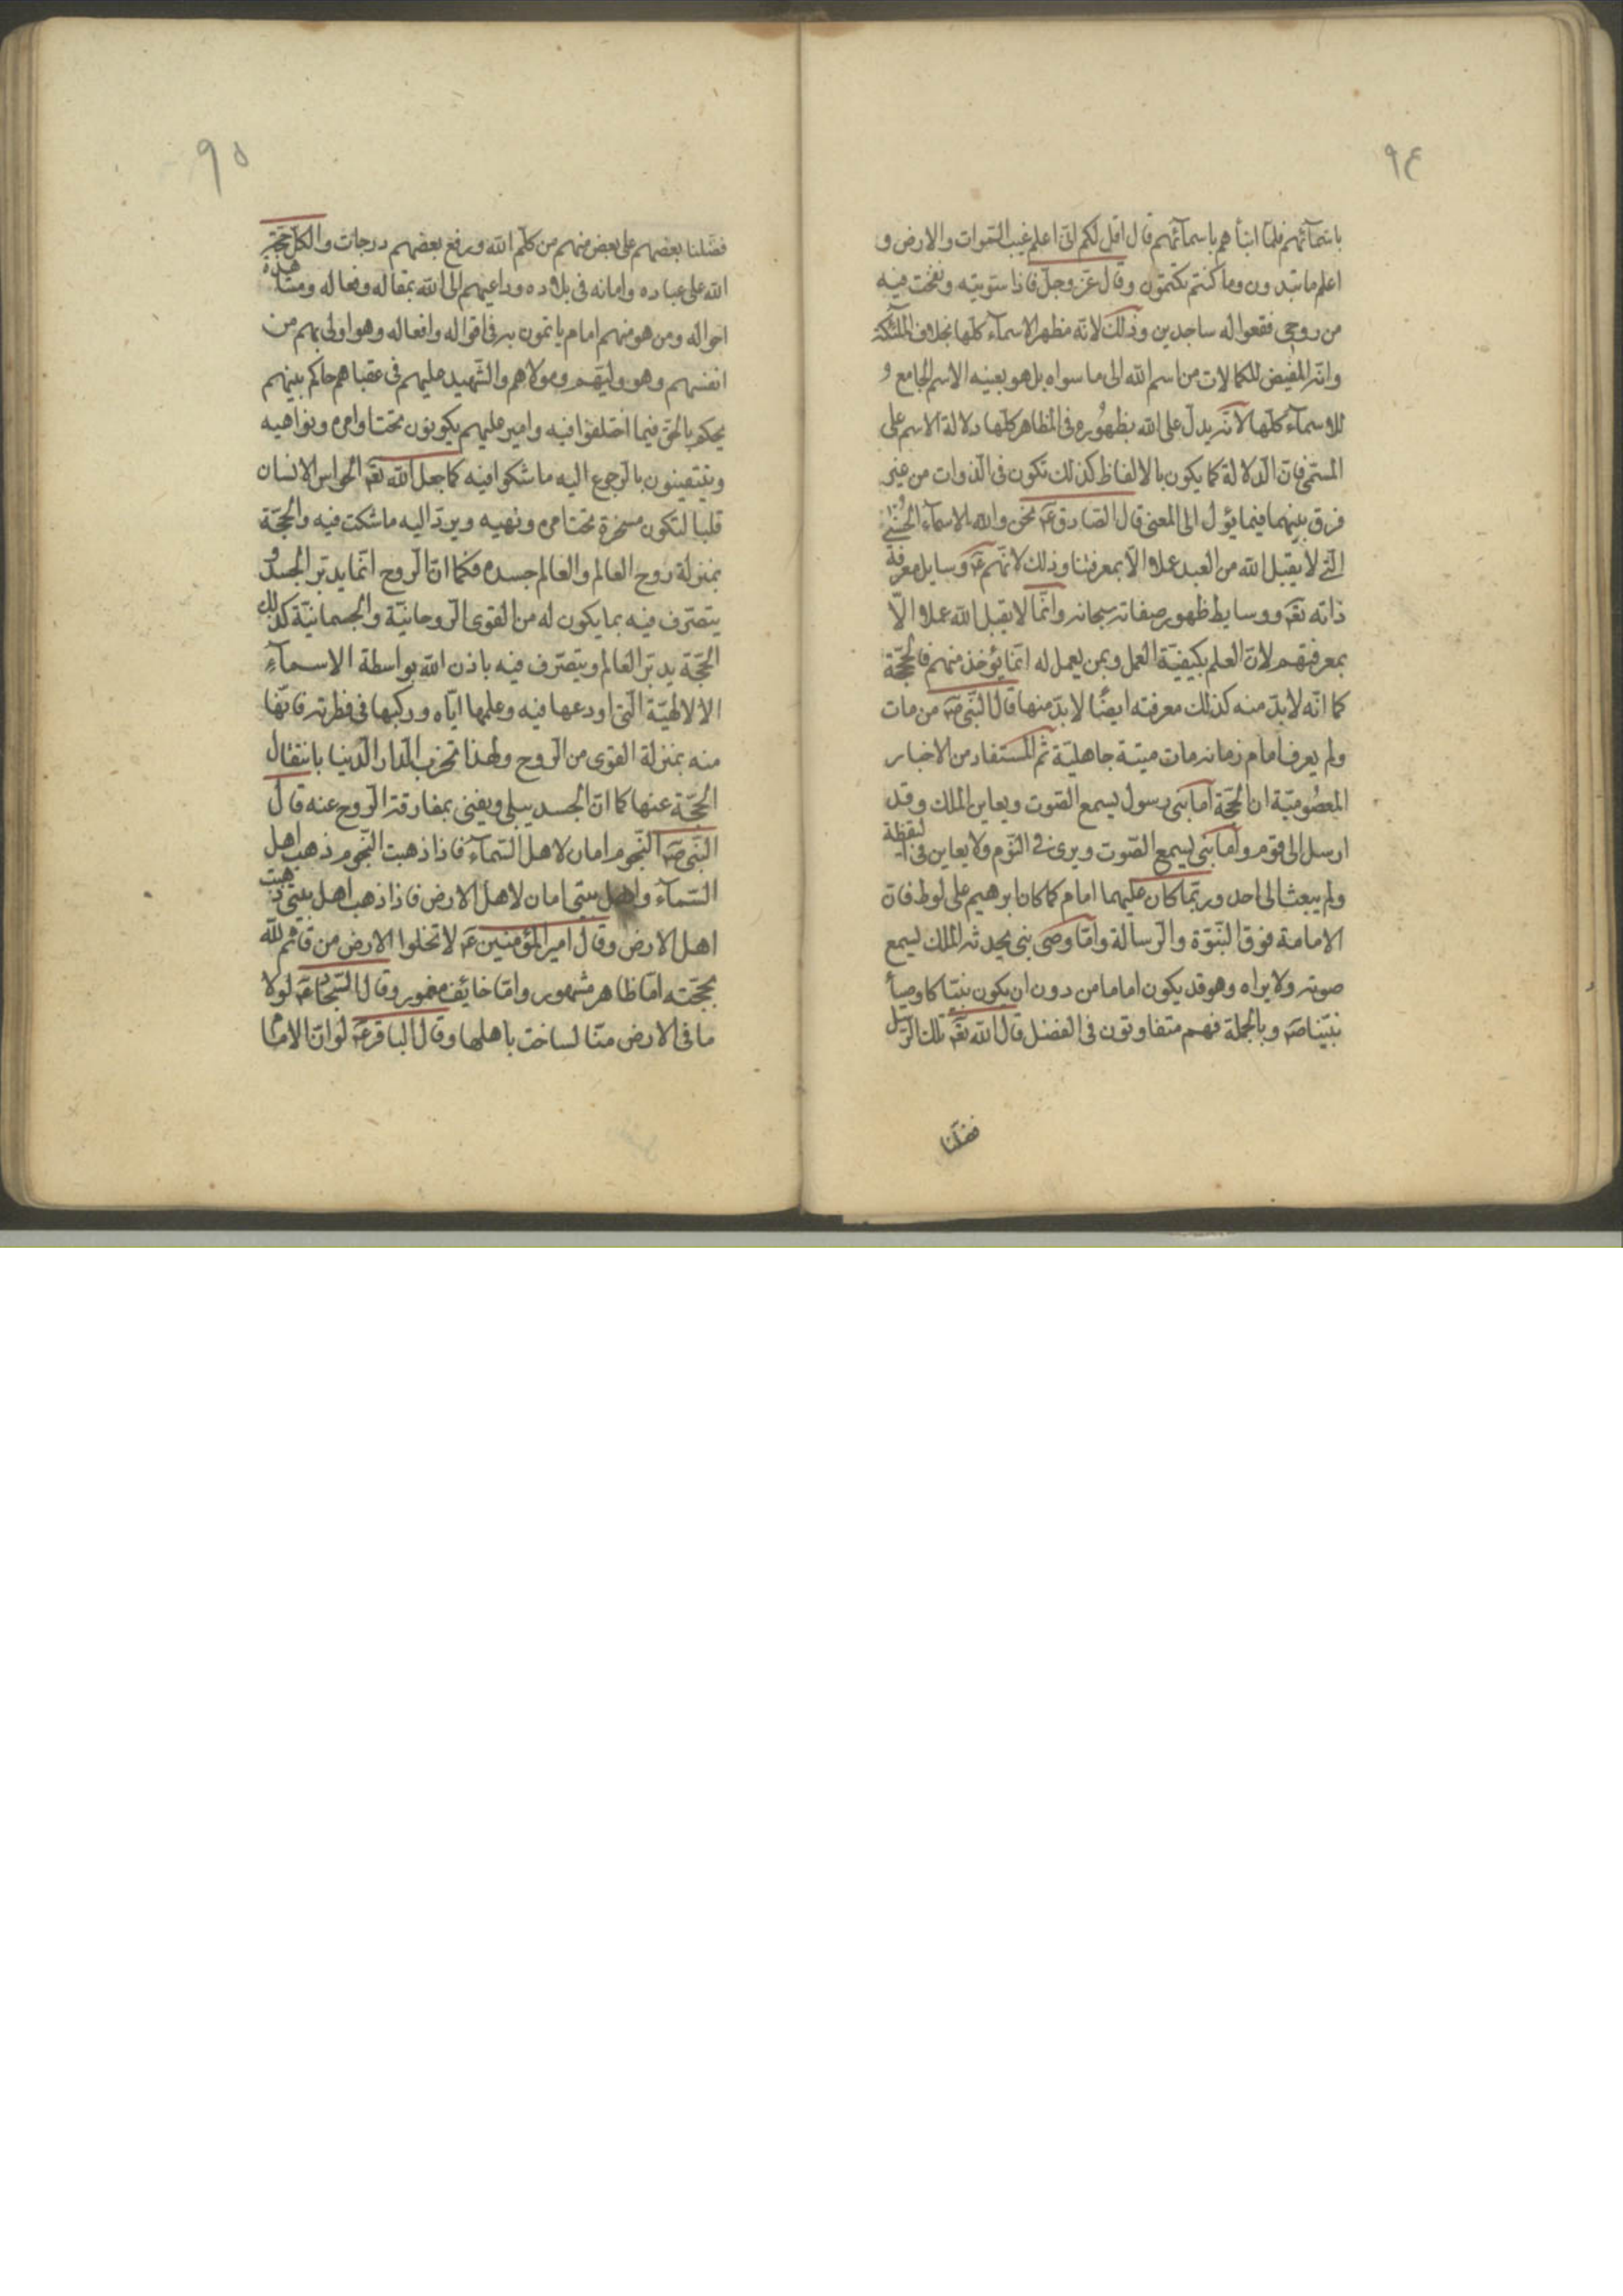 ٩٤
باسمآئهم فلمّا انبأهم باسمآئهم قال الم اقل لكم انّى اعلم غيب السّموات والارض و
اعلم ما تبدون وما كنتم تكتمون وقال عزّ وجلّ فاذا سوّيته ونفخت فيه
من روحى فقعوا له ساجدين وذلك لانّه مظهر الاسمآء كلّها بخلاف الملئكة
وانّه المفيض للكمالات من اسم الله الى ما سواه بل هو بعينه الاسم الجامع و
للاسمآء كلّها لانّه يدلّ على الله بظهوره فى المظاهر كلّها دلالة الاسم على
المسمّى فانّ الدلالة كما يكون بالالفاظ كذلك تكون فى الذوات من غير
فرق بينهما فيما يؤل الى المعنى قال الصّادق عم نحن والله الاسمآء الحسنى
الّتى لا يقبل الله من العبد عملا الّا بمعرفتنا وذلك لانّهم عم وسايل معرفة
ذاته تعم ووسايط ظهور صفاته سبحانه وانّما لا يقبل الله عملا الّا
بمعرفتهم لانّ العلم بكيفيّة العمل وبمن يعمل له انّما يؤخذ منهم فالحجّة
كما انّه لابدّ منه كذلك معرفته ايضًا لابدّ منها قال النّبى صم من مات
ولم يعرف امام زمانه مات ميتة جاهليّة ثم المستفاد من الاخبار
المعصوميّة ان الحجّة اما نبى رسول يسمع الصّوت ويعاين الملك وقد
ارسل الى قوم واما نبى يسمع الصّوت ويرى فى النّوم ولا يعاين فى اليقظة
ولم يبعث الى احد وربّما كان عليهما امام كما كان ابرهيم على لوط فانّ
الامامة فوق النبوّة والرّسالة وامّا وصى نبى يحدثه الملك يسمع
صوته ولا يراه وهو قد يكون اماما من دون ان يكون نبيّا كاوصيآء
نبيّنا صم وبالجملة فهم متفاوتون فى الفضل قال الله تعم تلك الرّسل
فضّلنا
٩٥
فضّلنا بعضهم على بعض منهم من كلّم الله ورفع بعضهم درجات والكلّ حجّة
الله على عباده وامانه فى بلاده وداعيهم الى الله بمقاله وفعاله ومشاهدة
احواله ومن هو منهم امام ياتمون به فى اقواله وافعاله وهو اولى بهم من
انفسهم وهو وليّهم ومولاهم والشّهيد عليهم فى عقباهم حاكم بينهم
يحكم بالحقّ فيما اختلفوا فيه وامير عليهم يكونون تحت اوامره ونواهيه
ويتيقينون بالرجوع اليه ما شكوا فيه كما جعل الله تعم لحواس الانسان
قلبا لتكون مسخرة تحت امره ونهيه ويردّ اليه ما شكت فيه والحجّة
بمنزلة روح العالم والعالم جسده فكما انّ الرّوح انّما يدبّر الجسد و
يتصّرف فيه بما يكون له من القوى الرّوحانيّة والجسمانيّة كذلك
الحجّة يدبّر العالم ويتصّرف فيه باذن الله بواسطة الاسمآء
الالالهيّة الّتى اودعها فيه وعلمها ايّاه وركبها فى فطرته فانّها
منه بمنزلة القوى من الرّوح ولهذا تخرب الدّار الدّنيا بانتقال
الحجّة عنها كما انّ الجسد يبلى ويفنى بمفارقة الرّوح عنه قال
النّبى صم النّجوم امان لاهل السّمآء فاذا ذهبت النّجوم ذهب اهل
السّمآء واهل بيتى امان لاهل الارض فاذا ذهب اهل بيتى ذهبت
اهل الارض وقال امير المؤمنين عم لا تخلوا الارض من قائم لله
بحجّته امّا ظاهر مشهور وامّا خايف مغمور وقال السّجاد عم لولا
ما فى الارض منّا لساخت باهلها وقال الباقر عم لو انّ الامام